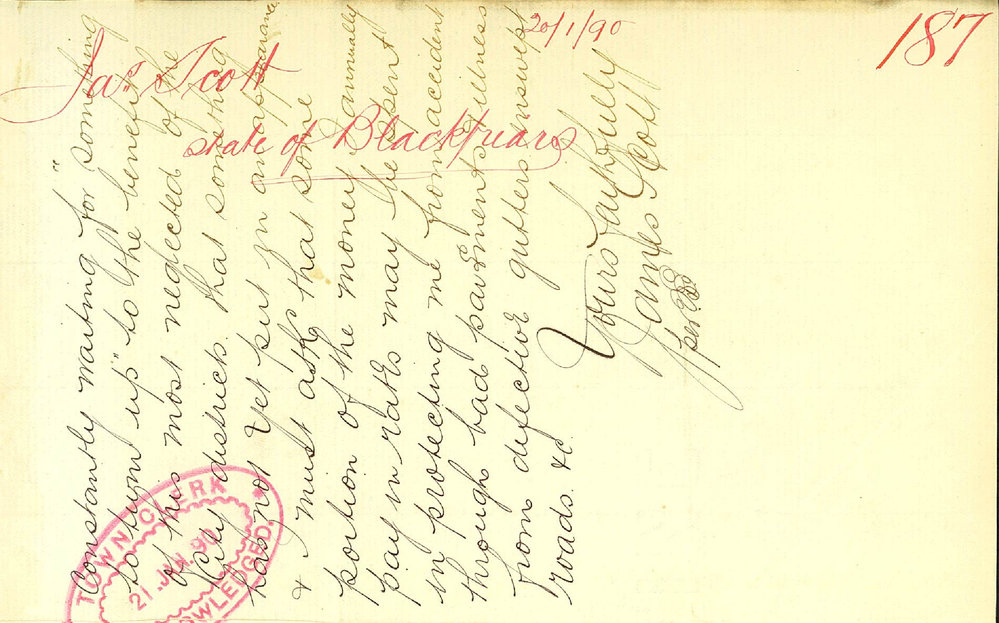 187
20/1/90
Jas Scott
state of Blackfriars
Constantly waiting for "something
to turn up" to the benefit
of this most neglected of the
City district that something
has not yet put in an appearance
& I must ask that some
portion of the money I annually
pay in rates may be spent
in protecting me from accident
through bad pavements & illness
from defective gutters unswept
roads &c.
Yours faithfully
James Scott
per
TOWN CLERK
21 JAN. 90